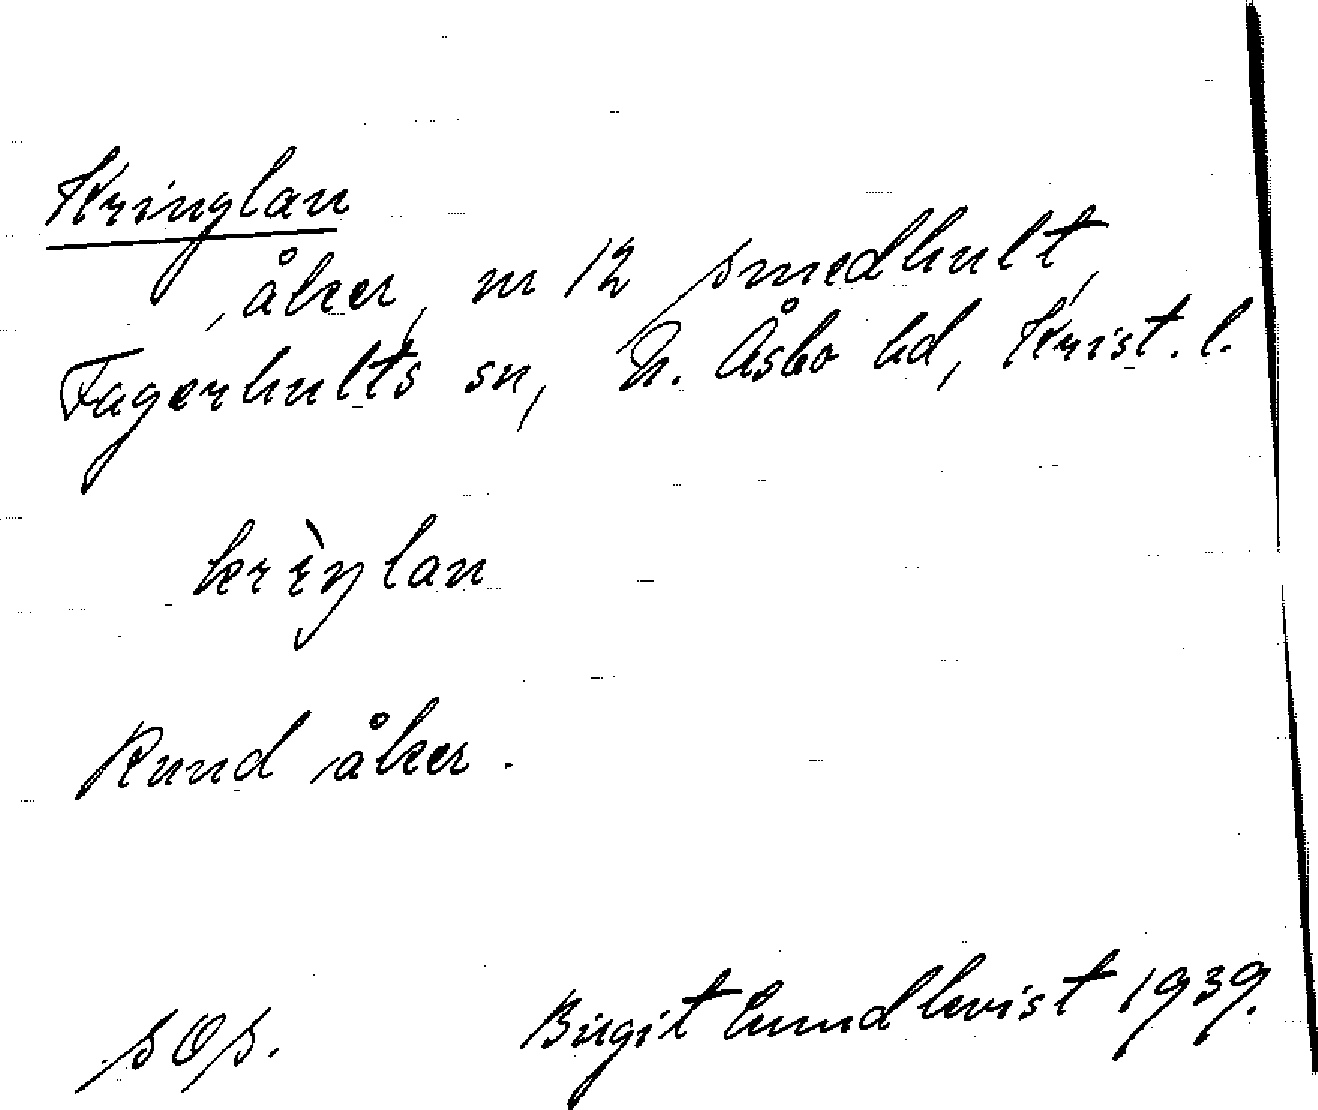 Kringlan
åker, nr 12 Smedhult,
Fagerhults sn, N. Åsbo hd, Krist. l.
krìŋlan
Rund åker.
Birgit Lundkvist 1939.